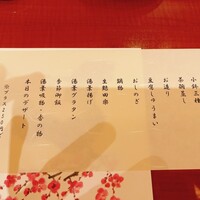 小鉢三種
茶碗蒸し
お造り
豆腐しゅうまい
おしのぎ
鍋物
生麩田楽
湯葉揚げ
湯葉グラタン
季節御飯
湯葉吸物・香の物
本日のデザート